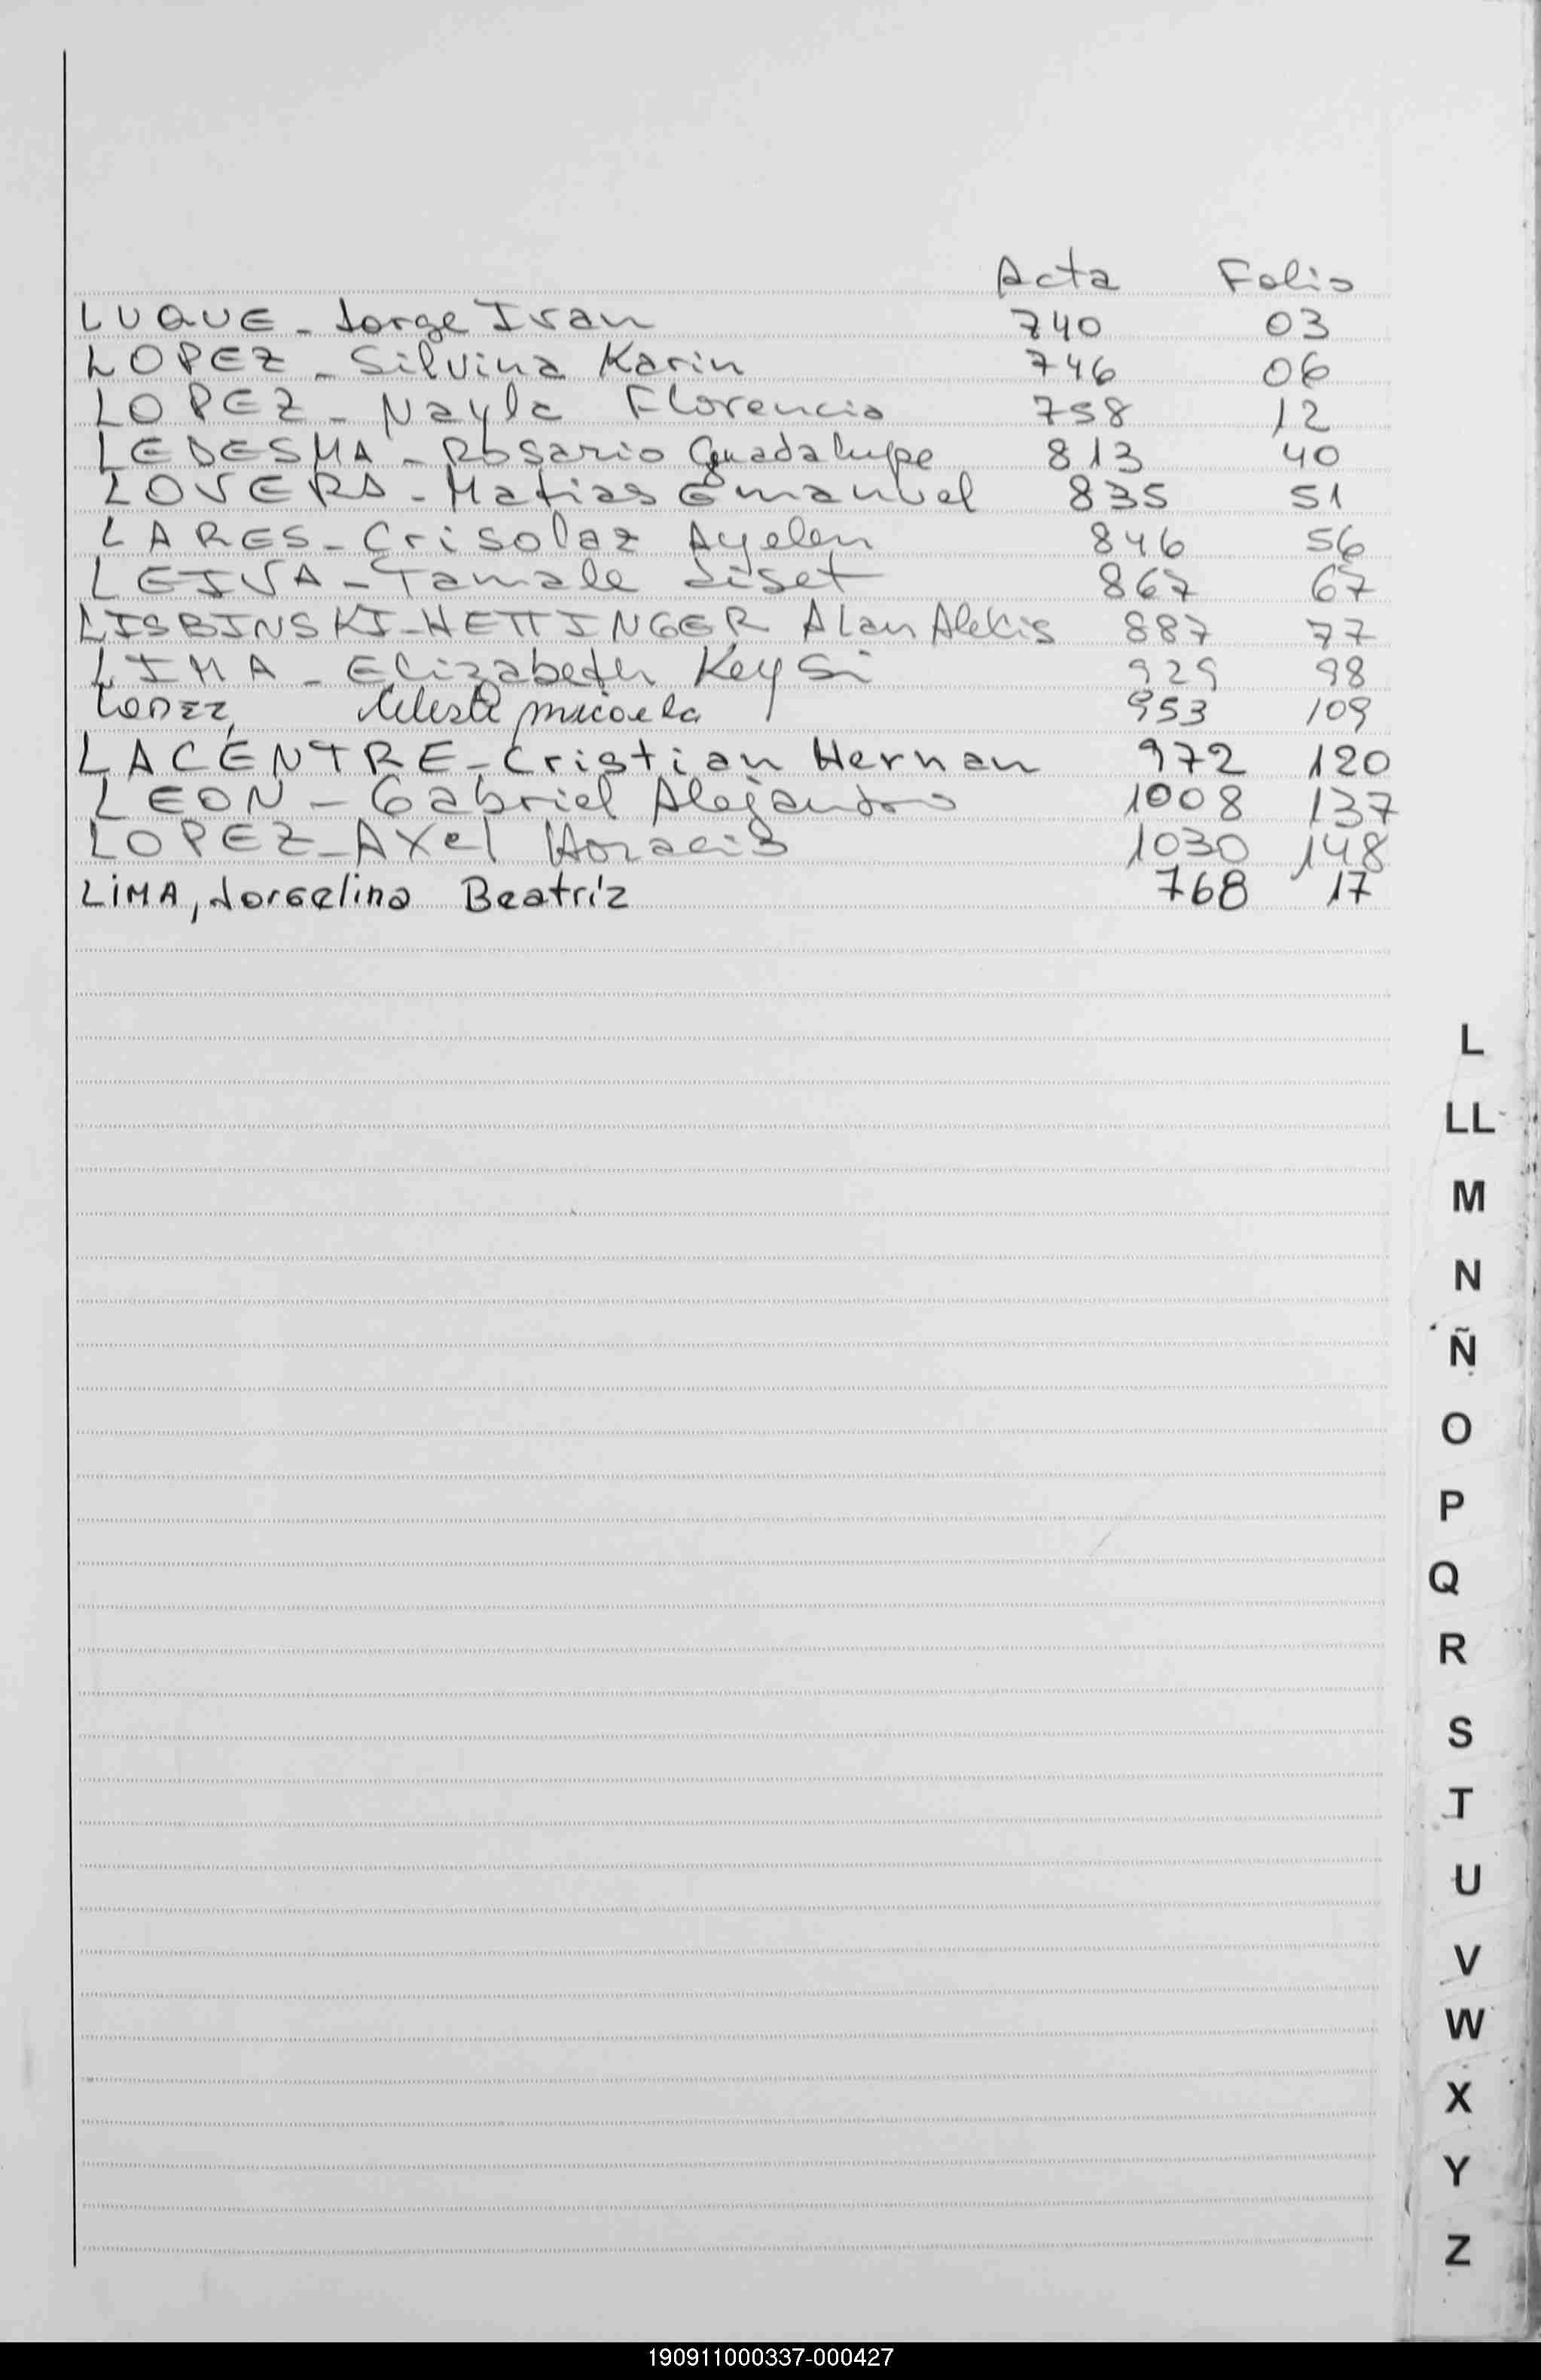 Acta Folio
LUQUE - Jorge Ivan 740 03
LOPEZ - Silvina Karin 746 06
LOPEZ - Nayla Florencia 758 12
LEDESMA - Rosario Guadalupe 813 40
LOVERA - Matias Emanuel 835 51
LARES - Crisolaz Ayelen 846 56
LEIVA - Tamale Liset 867 67
LISBINSKI-HETTINGER Alan Alekis 887 77
LIMA - Elizabeth Keysi 929 98
Lopez, Celeste micaela 953 109
LACENTRE - Cristian Hernan 972 120
LEON - Gabriel Alejandro 1008 137
LOPEZ - Axel Horacio 1030 148
LiMA, Jorgelina Beatriz 768 17
L
LL
M
N
Ñ
O
P
Q
R
S
T
U
V
W
X
Y
Z
190911000337-000427